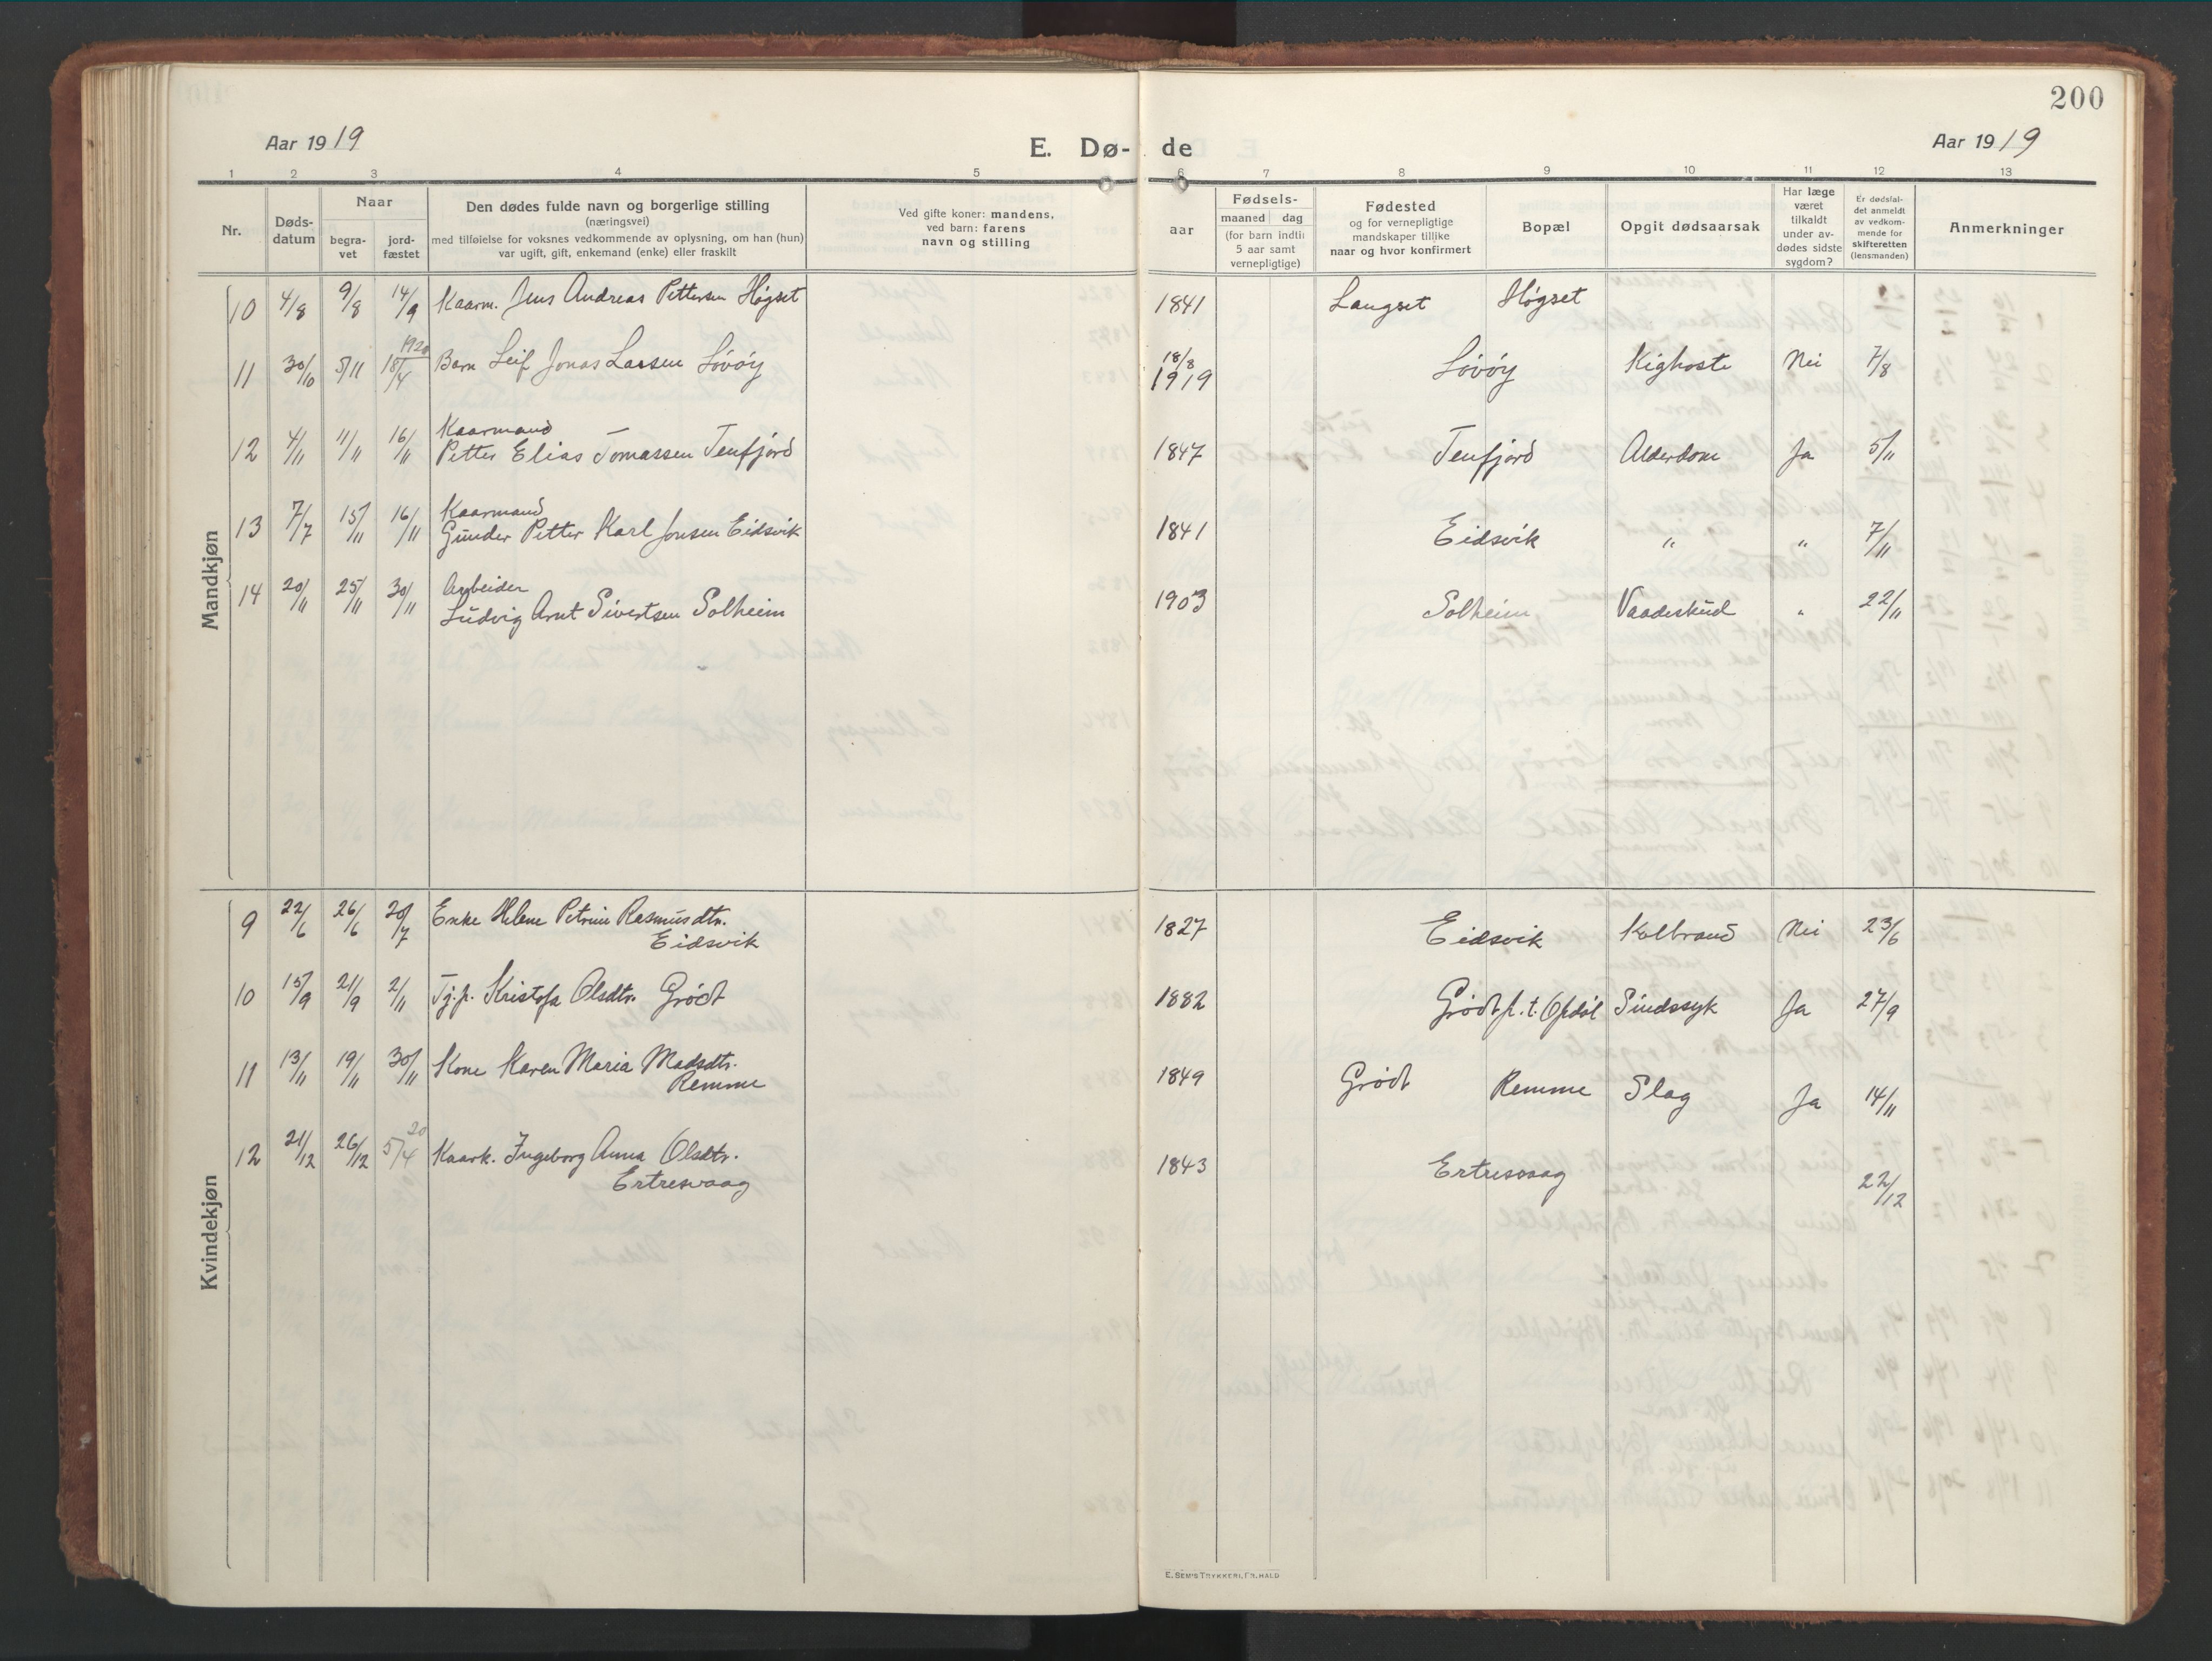 200
Aar 1919
E. Dø-de
Aar 1919
1 2 3 4 5 6 7 8 9 10 11 12 13
Nr.
Døds-
datum
Naar
begra-
vet
jord-
fæstet
Den dødes fulde navn og borgerlige stilling
(næringsvei)
med tilføielse for voksnes vedkommende av oplysning, om han (hun)
var ugift, gift, enkemand (enke) eller fraskilt
Ved gifte koner: mandens,
ved barn: farens
navn og stilling
aar
Fødsels-
maaned dag
(for barn indtil
5 aar samt
vernepligtige)
Fødested
og for vernepligtige
mandskaper tillike
naar og hvor konfirmert
Bopæl
Opgit dødsaarsak
Har læge
været
tilkaldt
under av-
dødes sidste
sygdom?
Er dødsfal-
det anmeldt
av vedkom-
mende for
skifteretten
(lensmanden)
Anmerkninger
Mandkjøn
10 4/8 9/8 14/9 Kaarm. Jens Andreas Pettersen Høgset 1841 Langset Høgset
11 30/10 5/11 18/4 1920 Barn Leif Jonas Lassen Løvøy 18/8 1919 Løvøy Kighoste Nei 7/8
12 4/11 11/11 16/11 Kaarmand
Petter Elias Tomassen Tenfjord 1847 Tenfjord Alderdom Ja 5/11
13 7/7 15/11 16/11 Kaarmand
Gunder Petter Karl Jonsen Eidsvik 1841 Eidsvik " " 7/11
14 20/11 25/11 30/11 Arbeider
Ludvig Arnt Sivertsen Solheim 1903 Solheim Vaadeskud " 22/11
Kvindekjøn
9 22/6 26/6 20/7 Enke Helene Petrine Rasmusdtr.
Eidsvik 1827 Eidsvik Kolbrand Nei 23/6
10 15/9 21/9 2/11 Tj.p. Kristofa Olsdtr. Grødt 1882 Grødt p.t. Opdøl Sindssyk Ja 27/9
11 13/11 19/11 30/11 Kone Karen Maria Madsdtr.
Remme 1849 Grødt Remme Slag Ja 14/11
12 21/12 26/12 5/4 20 Kaark. Ingeborg Anna Olsdtr.
Ertresvaag 1843 Ertresvaag 22/12
E. SEM'S TRYKKERI, FR.HALD